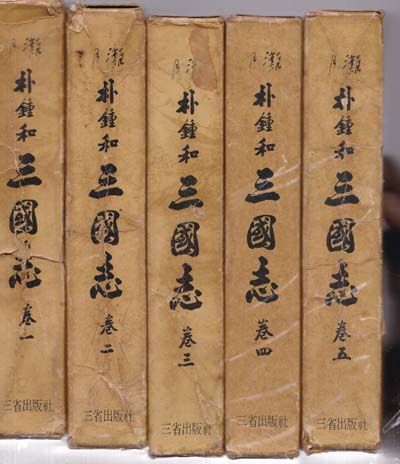 月灘
朴鍾和
三國志
卷一
三省出版社
月灘
朴鍾和
三國志
卷二
三省出版社
月灘
朴鍾和
三國志
卷三
三省出版社
月灘
朴鍾和
三國志
卷四
三省出版社
月灘
朴鍾和
三國志
卷五
三省出版社